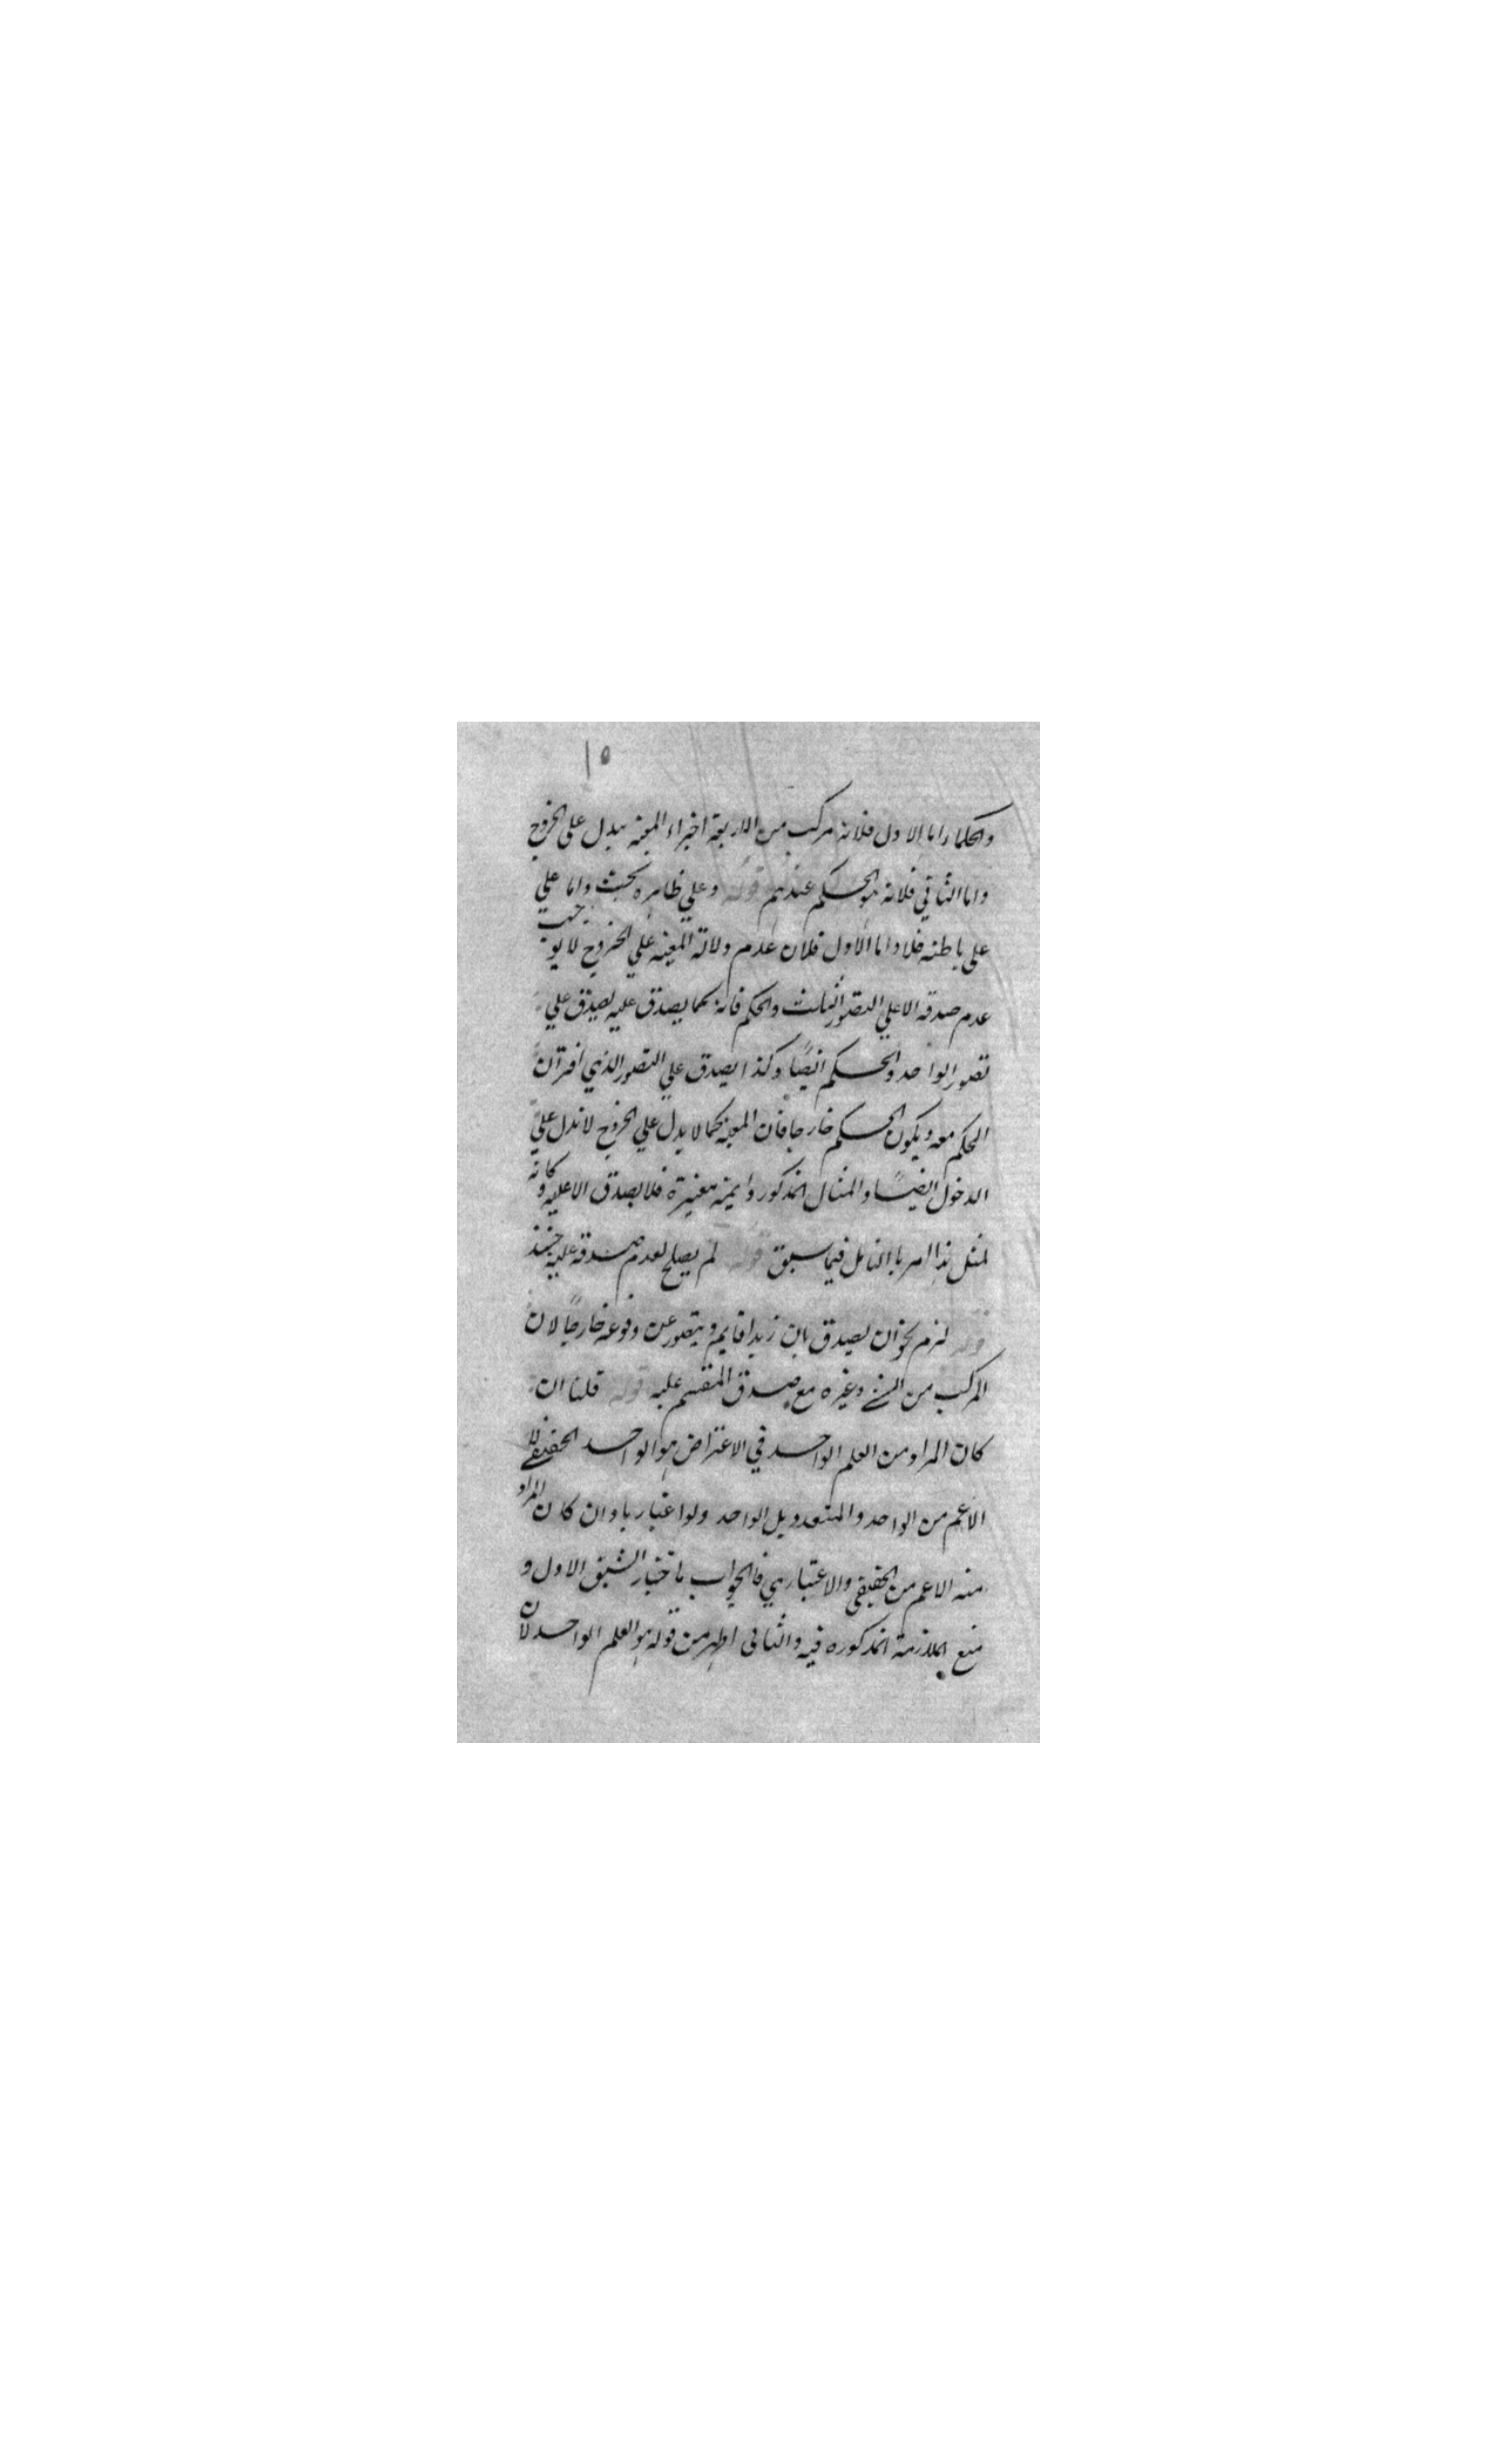 ١٥
والحكماء اما الاول فلانه مركب من الاربعة اجزاء المعية يدل على الخروج
واما الثاني فلانه هو الحكم عندهم قوله وعلي ظاهره بحث واما علي
علي باطنه فلا واما الاول فلان عدم دلالة المعية علي الخروج لا يوجب
عدم صدقه الا علي التصور الثالث والحكم فانه كما يصدق عليه يصدق علي
تصور الواحد والحكم ايضًا وكذا يصدق علي التصور الذي اقتران
الحكم معه ويكون الحكم خارجا فان المعية كما لا يدل علي الخروج لا تدل علي
الدخول ايضًا والمثال المذكور وامية معتبرة فلا يصدق الا عليه وكانه
لمثل هذا امر بالتامل فيما سبق قوله لم يصلح لعدم صدقه عليه حينئذ
قوله لزم لجوزان يصدق بان زيدا قايم ويتصور عن وقوعه خارجًا لان
المركب من الشئ وغيره مع صدق المقسم عليه قوله قلنا ان
كان المراد من العلم الواحد في الاعتراض هو الواحد الحقيقي لا
الاعم من الواحد والمتعدد بل الواحد ولو اعتباريا وان كان المراد
منه الاعم من الحقيقي والاعتباري فالجواب باختيار الشق الاول و
منع الملازمة المذكوره فيه والثاني اظهر من قوله هو العلم الواحد لان